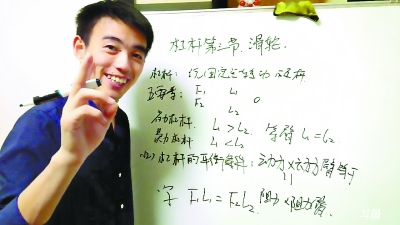 杠杆第三节.滑轮.
杠杆: 绕固定点转动 硬杆
五要素: F₁ L₁
F₂ L₂ O
省力杠杆. L₁>L₂. 等臂 L₁=L₂
费力杠杆. L₁<L₂
杠杆的平衡条件: 动力×动力臂等于
F₁L₁=F₂L₂. 阻力×阻力臂.